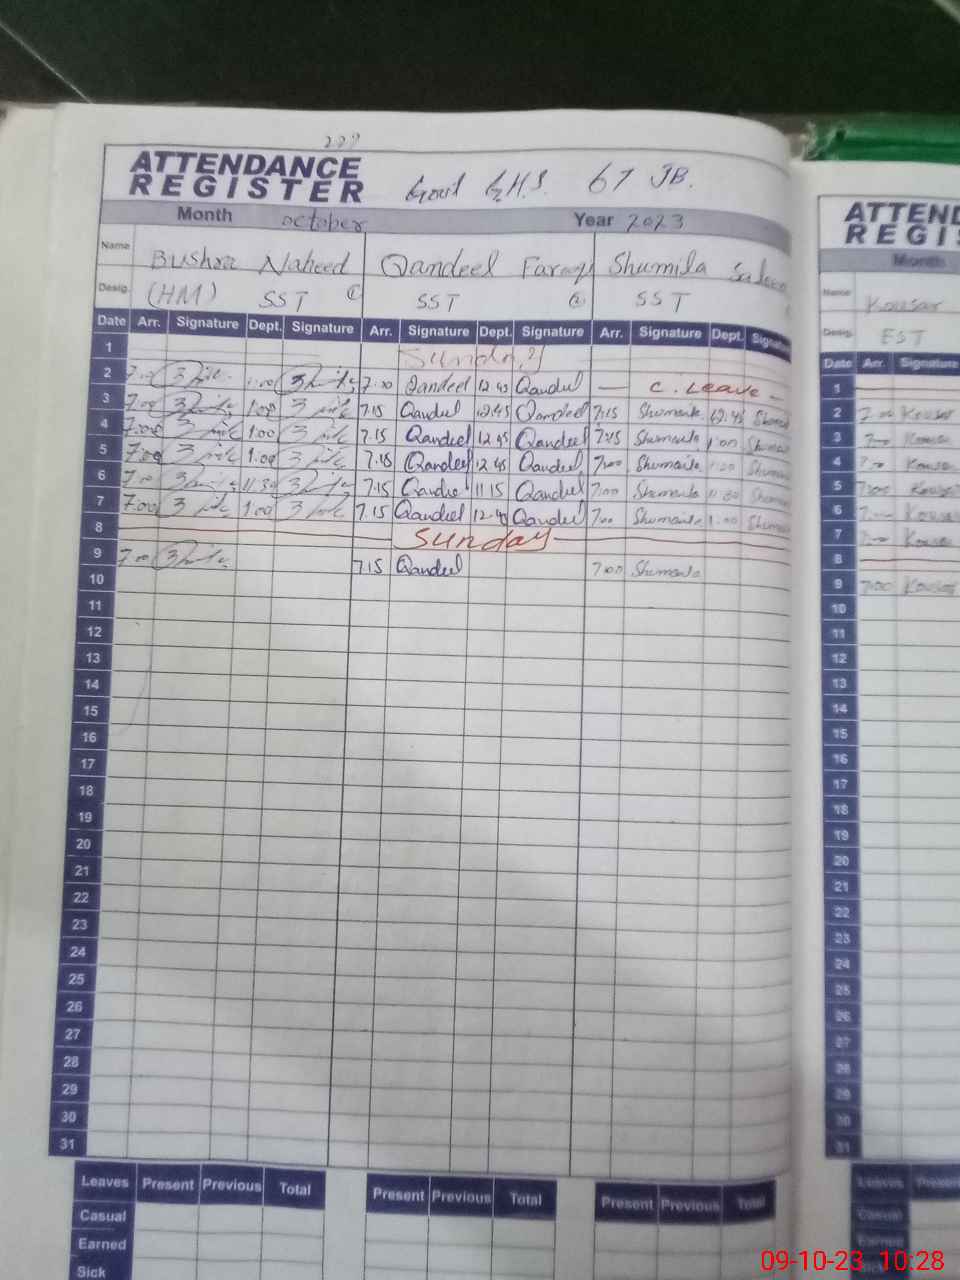 ATTENDANCE
REGISTER
Govt G.H.S. 67 JB.
Month October Year 2023
Name Bushra Naheed Qandeel Farooq Shumila Saleem
Desig. (HM) SST SST SST
Date Arr. Signature Dept. Signature Arr. Signature Dept. Signature Arr. Signature Dept. Signature
1 Sunday
2 7.00 1.00 7.00 Qandeel 12.45 Qandeel — C. Leave —
3 7.00 1.00 7.15 Qandeel 12.45 Qandeel 7.15 12.45
4 7.00 1.00 7.15 Qandeel 12.45 Qandeel 7.15 1.00
5 7.00 1.00 7.15 Qandeel 12.45 Qandeel 7.00 1.00
6 7.00 11.30 7.15 Qandeel 11.15 Qandeel 7.00 11.30
7 7.00 1.00 7.15 Qandeel 12.40 Qandeel 7.00 1.00
8 Sunday
9 7.00 7.15 Qandeel 7.00
10
11
12
13
14
15
16
17
18
19
20
21
22
23
24
25
26
27
28
29
30
31
Leaves Present Previous Total Present Previous Total Present Previous Total
Casual
Earned
Sick
ATTEND
REGIS
Month
Name Kousar
Desig. EST
Date Arr. Signature
1
2 7.00 Kousar
3 7.00 Kousar
4 7.00 Kousar
5 7.00 Kousar
6 7.00 Kousar
7 7.00 Kousar
8
9 7.00 Kousar
10
11
12
13
14
15
16
17
18
19
20
21
22
23
24
25
26
27
28
29
30
31
Leaves Present
Casual
Earned
09-10-23 10:28